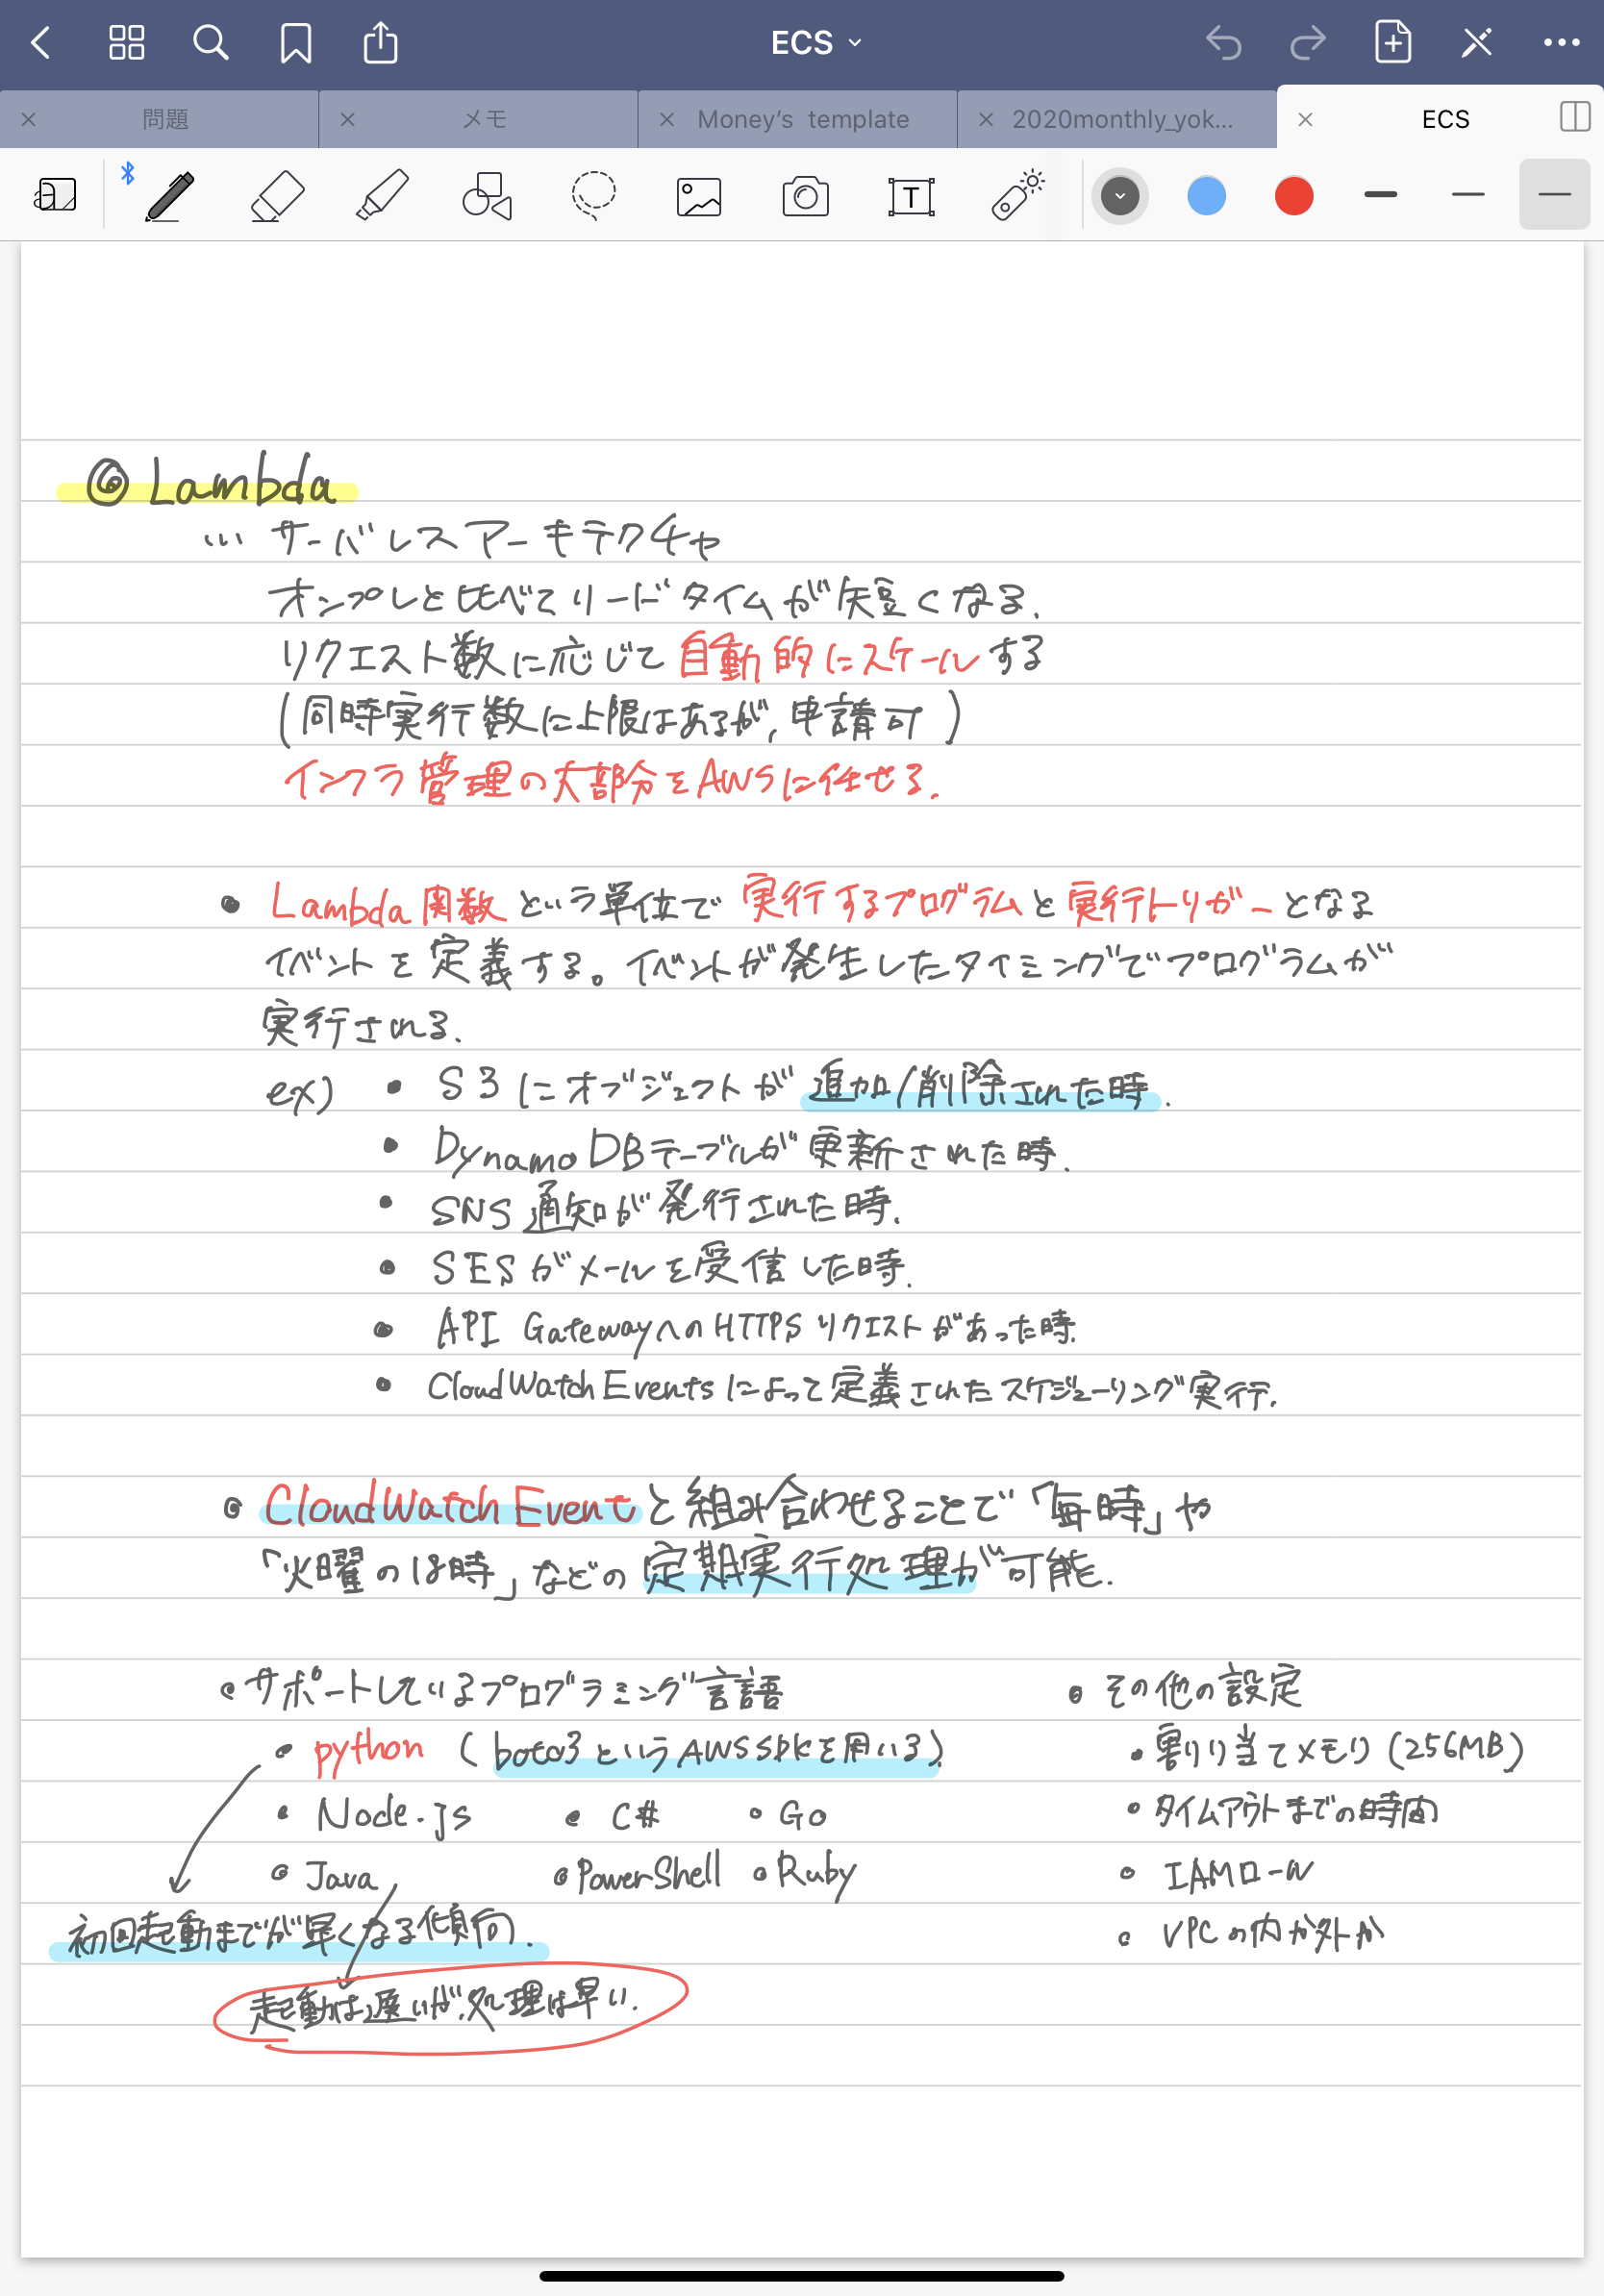 ECS
問題
メモ
Money's template
2020monthly_yok...
ECS
◎ Lambda
… サーバレスアーキテクチャ
オンプレと比べてリードタイムが短くなる.
リクエスト数に応じて自動的にスケールする
(同時実行数に上限はあるが, 申請可 )
インフラ管理の大部分をAWSに任せる.
• Lambda関数という単位で 実行するプログラムと実行トリガーとなる
イベントを定義する。イベントが発生したタイミングでプログラムが
実行される.
ex) • S3にオブジェクトが 追加/削除された時.
• DynamoDBテーブルが更新された時.
• SNS通知が発行された時.
• SESがメールを受信した時.
• API GatewayへのHTTPSリクエストがあった時.
• CloudWatch Eventsによって定義されたスケジューリング実行.
• CloudWatch Eventと組み合わせることで「毎時」や
「火曜の18時」などの定期実行処理が可能.
• サポートしているプログラミング言語
• python ( boto3というAWS SDKを用いる)
• Node.js • C# • Go
• Java • PowerShell • Ruby
初回起動までが早くなる傾向.
起動は遅いが、処理は早い.
• その他の設定
• 割り当てメモリ (256MB)
• タイムアウトまでの時間
• IAMロール
• VPCの内か外か